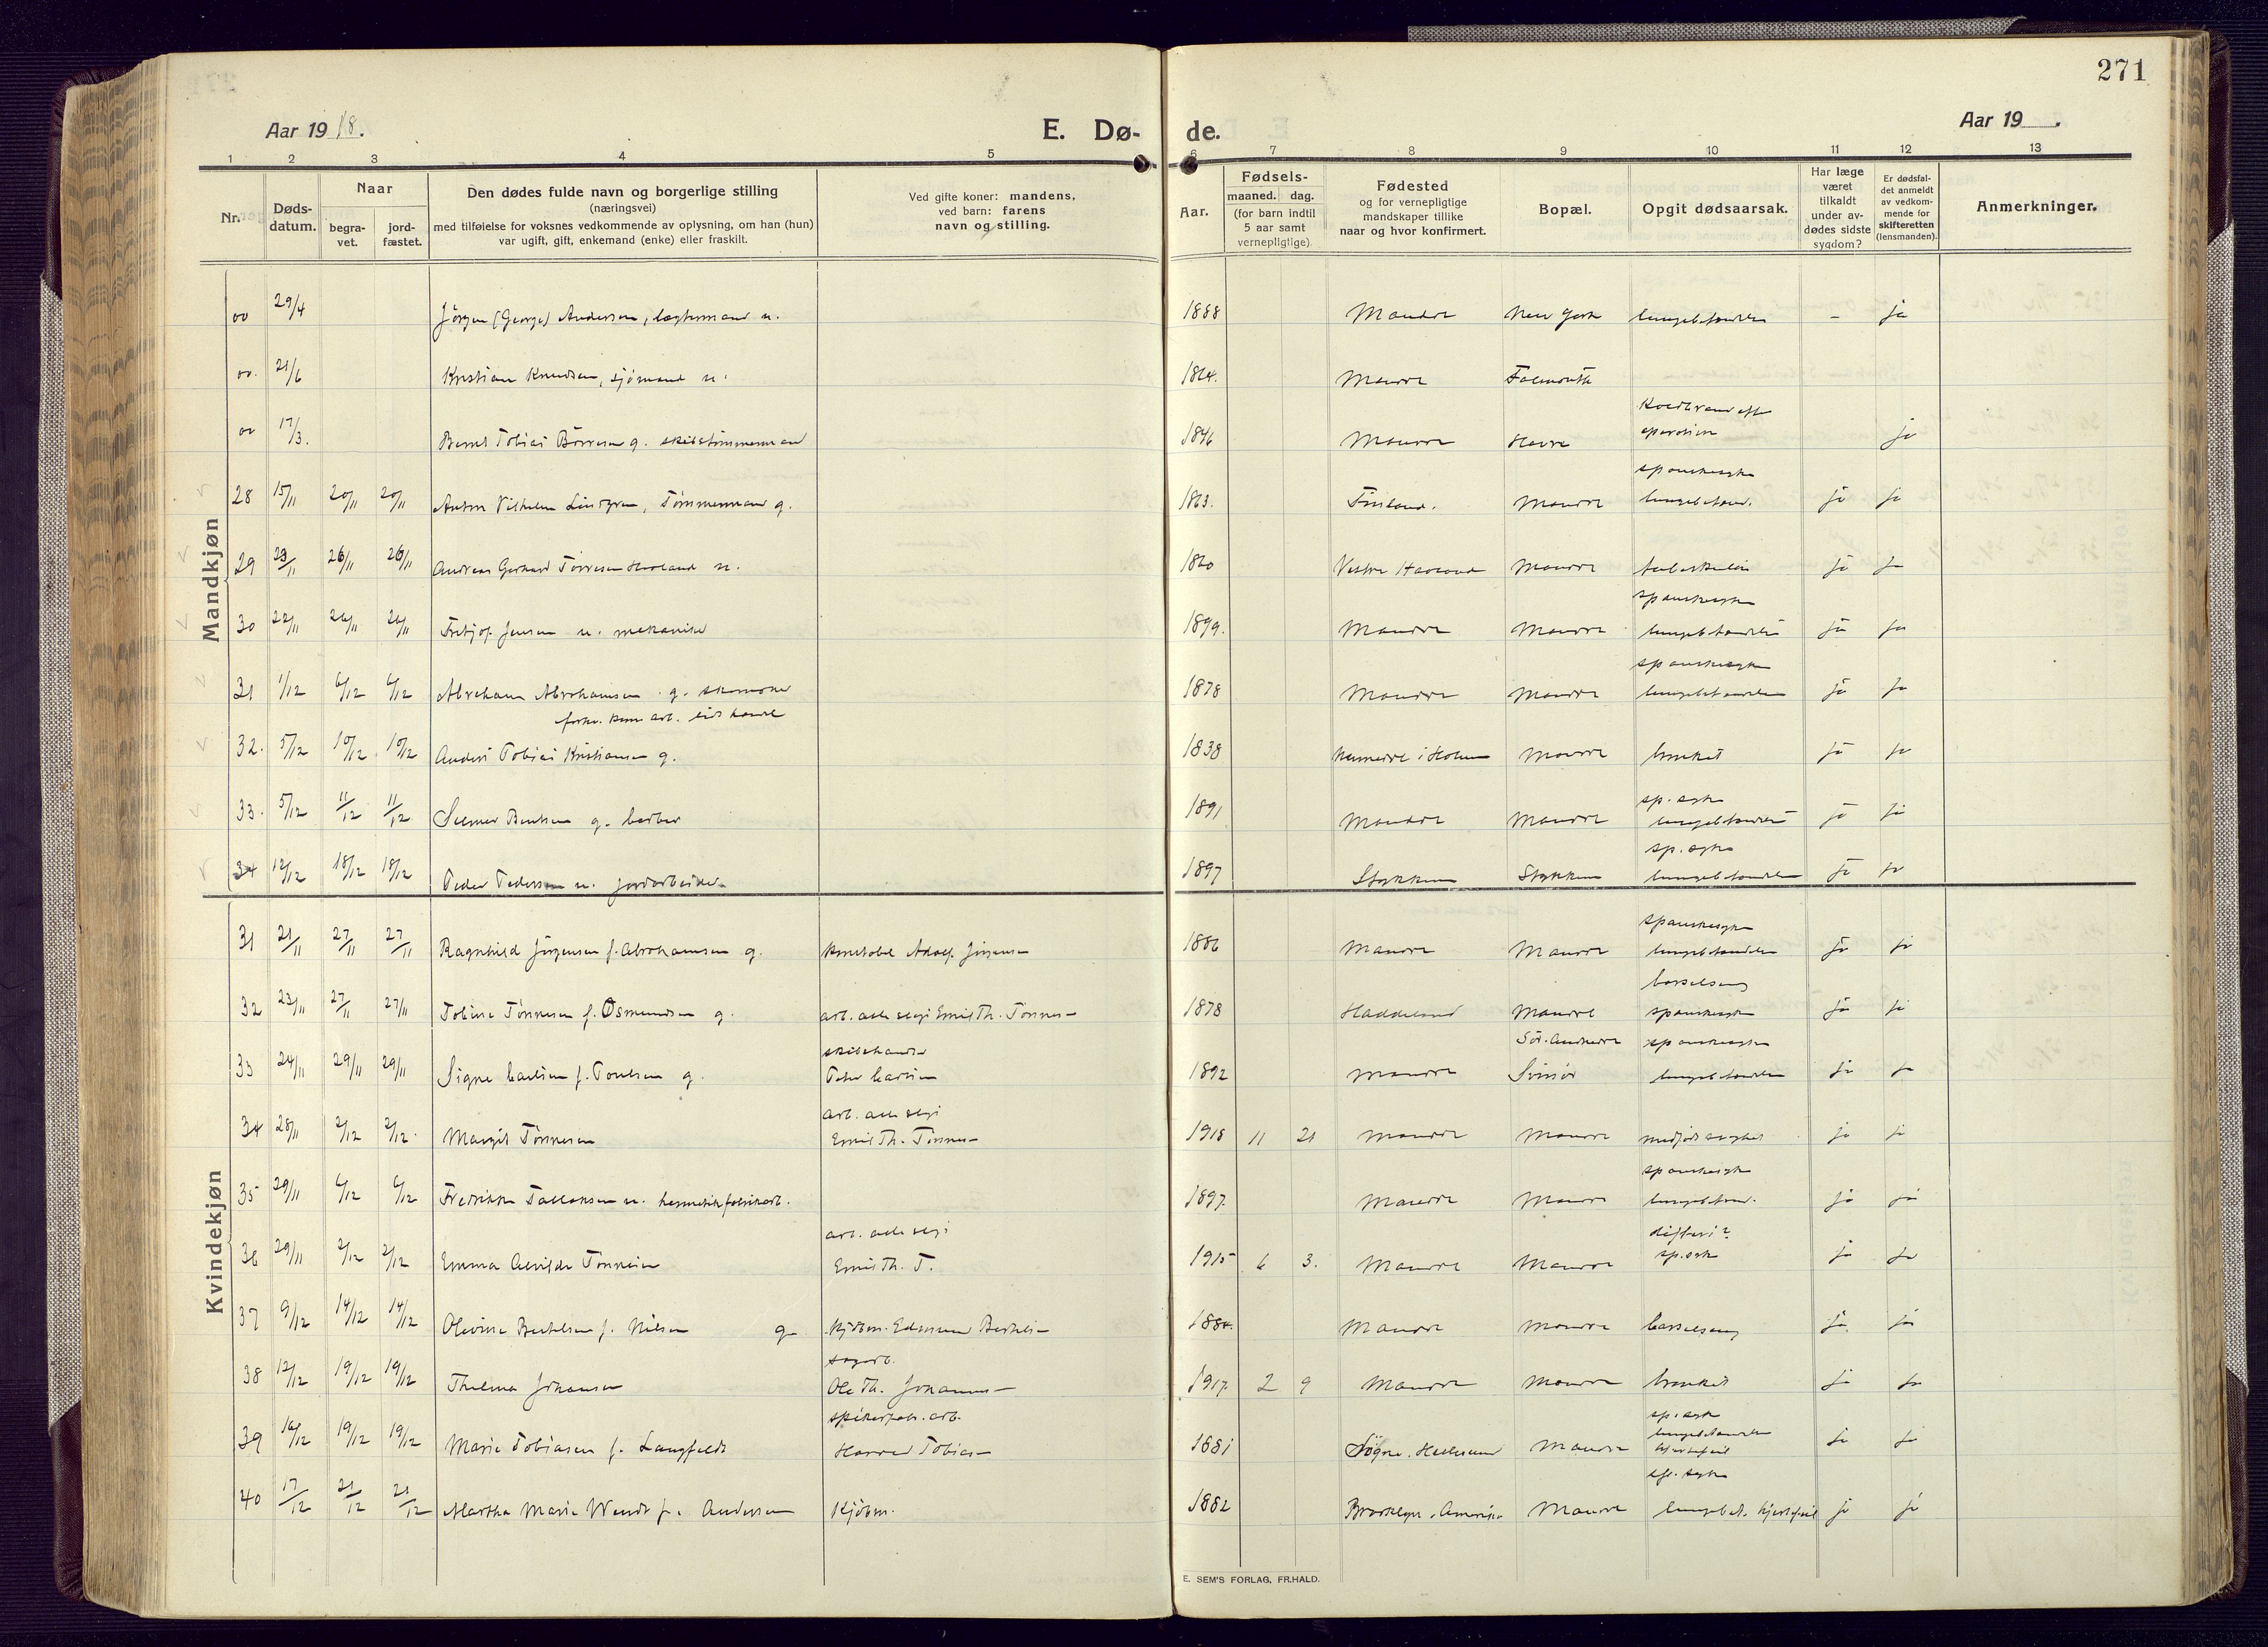 271
Aar 1918.
E. Dø-
de.
Aar 19 .
1 2 3 4 5 6 7 8 9 10 11 12 13
Nr.
Døds-
datum.
Naar
begra-
vet.
jord-
fæstet.
Den dødes fulde navn og borgerlige stilling
(næringsvei)
med tilføielse for voksnes vedkommende av oplysning, om han (hun)
var ugift, gift, enkemand (enke) eller fraskilt.
Ved gifte koner: mandens,
ved barn: farens
navn og stilling.
Aar.
Fødsels-
maaned. dag.
(for barn indtil
5 aar samt
vernepligtige).
Fødested
og for vernepligtige
mandskaper tillike
naar og hvor konfirmert.
Bopæl.
Opgit dødsaarsak.
Har læge
været
tilkaldt
under av-
dødes sidste
sygdom?
Er dødsfal-
det anmeldt
av vedkom-
mende for
skifteretten
(lensmanden).
Anmerkninger.
Mandkjøn
29/4 Jörgen (George) Andersen, u. 1888 Mandal New York lungebetændelse - ja
21/6 Kristian Knudsen, sjömand u. 1864. Mandal Falmouth
Koldbrand eft.
17/3. Bernt Tobias Börresen g. skibstömmermand 1846 Mandal Havre operation ja
spanskesyke
28 15/11 20/11 20/11 Anton Vilhelm Lindgren, Tömmermand g. 1863. Finland. Mandal lungebetænd. ja ja
29 23/11 26/11 26/11 Andreas Gerhard Törresen Haaland u. 1860 Vestre Haaland Mandal tuberkulose ja ja
spanskesyke
30 22/11 26/11 26/11 Fritjof Jensen u. mekaniker 1899. Mandal Mandal lungebetændelse ja ja
spanskesyke
31 1/12 6/12 6/12 Abraham Abrahamsen g. skomaker 1878 Mandal Mandal lungebetændelse ja ja
32. 5/12 10/12 10/12 Anders Tobias Kristiansen g. 1838 i Holum Mandal bronkit ja ja
sp. syke
33. 5/12 11/12 11/12 Selmer Bentsen g. barber 1891 Mandal Mandal lungebetændelse ja ja
sp. syke
34 12/12 18/12 18/12 Peder Pedersen u. jordarbeider 1897 Stokken Stokken lungebetændelse ja ja
Kvindekjøn
spanskesyke
31 21/11 27/11 27/11 Ragnhild Jörgensen f. Abrahamsen g. konstabel Adolf Jörgensen 1886 Mandal Mandal lungebetændelse ja ja
barselseng
32 23/11 27/11 27/11 Tobine Tönnesen f. Osmundsen g. Emil Th. Tönnes- 1878 Haddeland Mandal spanskesyke ja ja
Sör-Audnedal spanskesyke
33 24/11 29/11 29/11 Signe Carlsen f. Poulsen g. Peder Carlsen 1892 Mandal Svinör lungebetændelse ja ja
34 28/11 2/12 2/12. Margit Tönnesen Emil Th. Tönnes- 1918 11 21 Mandal Mandal medfödt svakhet ja ja
spanskesyke
35 29/11 6/12 6/12 Fredrikke Tallaksen u. hermetikfabrikarb. 1897. Mandal Mandal lungebetænd. ja ja
difteri?
36 29/11 2/12 2/12 Emma Alvilde Tönnesen Emil Th. T. 1915 6 3. Mandal Mandal sp. syke ja ja
37 9/12 14/12 14/12 Olevine Bertelsen f. Nilsen g. Kjöbm. Edmund Bertels- 1884. Mandal Mandal barselseng ja. ja
sagarb.
38 12/12 19/12 19/12 Thelma Johansen Ole Th. Johannes- 1917. 2 9 Mandal Mandal bronkit ja ja
spikerfabr. arb. sp. syke
39 16/12 19/12 19/12 Marie Tobiasen f. Langfeldt Harald Tobias- 1881 Søgne. Hellesund Mandal lungebetændelse hjertefeil ja ja
sp. syke
40 17/12 21/12 21/12 Martha Marie Wendt f. Andersen Kjöbm. 1882 Brooklyn, Amerika Mandal lungebet. hjertefeil ja ja
E. SEM'S FORLAG, FR.HALD.